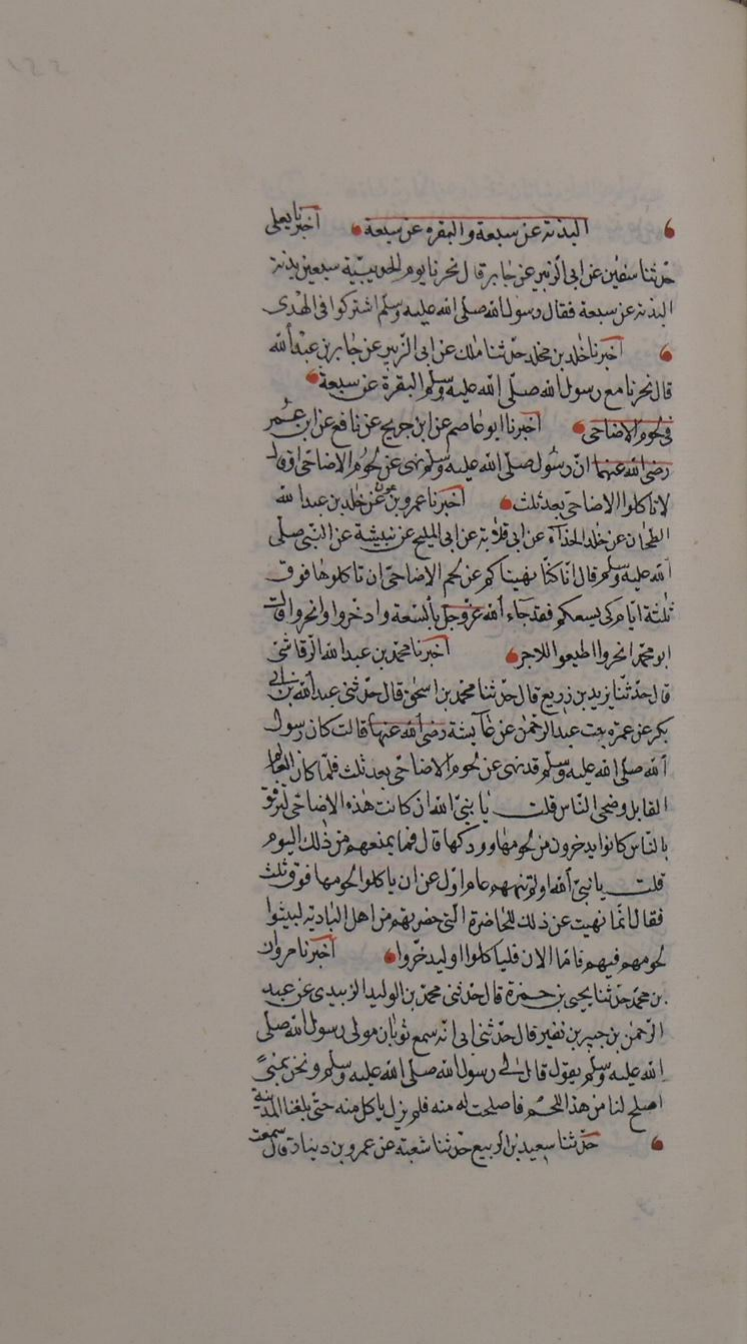 البدنة عن سبعة والبقرة عن سبعة اخبرنا يعلى
حدثنا سفين عن ابى الزبير عن جابر قال نحرنا يوم الحديبية سبعين بدنة
البدنة عن سبعة فقال رسول الله صلى الله عليه وسلم اشتركوا فى الهدى
اخبرنا خلد بن مخلد حدثنا ملك عن ابى الزبير عن جابر بن عبد الله
قال نحرنا مع رسول الله صلى الله عليه وسلم البقرة عن سبعة
فى لحوم الاضاحى اخبرنا ابو عاصم عن ابن جريج عن نافع عن ابن عمر
رضى الله عنهما ان رسول صلى الله عليه وسلم نهى عن لحوم الاضاحى او قال
لا تاكلوا الاضاحى بعد ثلث اخبرنا عمرو بن عون عن خلد بن عبد الله
الطحان عن خلد الحذاء عن ابى قلابة عن ابى المليح عن نبيشة عن النبى صلى
الله عليه وسلم قال انا كنا نهيناكم عن لحم الاضاحى ان تاكلوها فوق
ثلثة ايام كى يسعكم فقد جاء الله عز وجل بالسعة وادخروا وانحروا قالت
ابو محمد انحروا اطيعوا اللاجر اخبرنا محمد بن عبد الله الرقاشى
قال حدثنا يزيد بن زريع قال حدثنا محمد بن اسحق قال حدثنى عبد الله بن ابى
بكر عن عمرة بنت عبد الرحمن عن عايشة رضى الله عنها قالت كان رسول
الله صلى الله عليه وسلم قد نهى عن لحوم الاضاحى بعد ثلث فلما كان العام
القابل وضحى الناس قلت يا نبى الله ان كانت هذه الاضاحى لترفق
بالناس كانوا يدخرون من لحومها وودكها قال فما يمنعهم من ذلك اليوم
قلت يا نبى الله اولم تنههم عام اول عن ان ياكلوا لحومها فوق ثلث
فقال انما نهيت عن ذلك للحاضرة التى حضرتهم من اهل البادية ليبثوا
لحومهم فيهم فاما الان فلياكلوا وليدخروا اخبرنا مروان
بن محمد حدثنا يحيى بن حمزة قال حدثنى محمد بن الوليد الزبيدى عن عبد
الرحمن بن جبير بن نفير قال حدثنى ابى انه سمع ثوبان مولى رسول الله صلى
الله عليه وسلم يقول قال لى رسول الله صلى الله عليه وسلم ونحن بمنى
اصلح لنا من هذا اللحم فاصلحت له منه فلم يزل ياكل منه حتى بلغنا المدينة
حدثنا سعيد بن الربيع حدثنا شعبة عن عمرو بن دينار قال سمعت